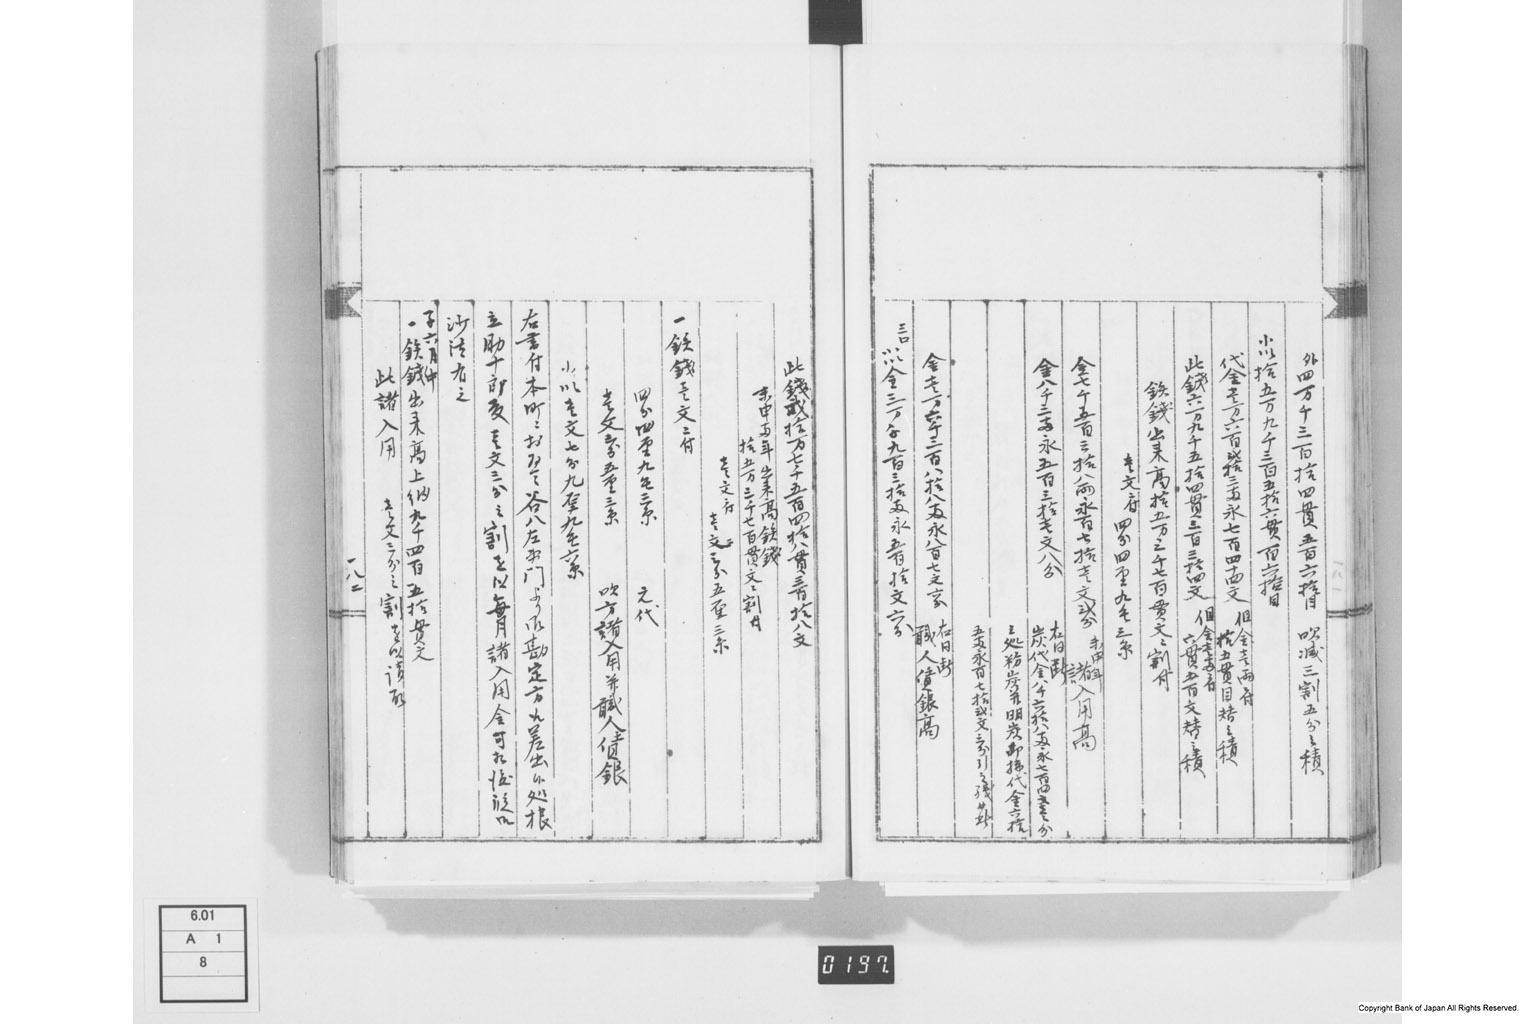 外四万千二百拾四貫五百六拾目 吹減三割五分之積
小以拾五万九千三百五拾六貫百六拾目
代金壱万六百弐拾三両永七百四十四文 但金壱両ニ付
拾五貫目替之積
此銭六万九千五拾四貫三百三拾四文 但金壱両ニ付
六貫五百文替之積
鉄銭出来高拾五万三千七百貫文ニ割付
壱文ニ付 四分四厘九毛三糸
金七千五百三拾八両永百七拾壱文弐分 未申 諸入用高
金八千三両永五百三拾壱文八分 右同断
炭代金八千六拾八両永七百四文壱分
之処粉炭并明炭 代金六拾
五両永百七拾弐文三分引之残 如此
金壱万六千三百八拾八両永八百七文 右同断
職人賃銀高
三口
小以金三万千九百三拾両永五百拾文六分
此銭弐拾万七千五百四拾八貫三百拾八文
未申両年出来高鉄銭
拾五万三千七百貫文ニ割付
壱文ニ付
壱文三分五厘三糸
一鉄銭壱文ニ付
四分四厘九毛三糸 元代
壱文三分五厘三糸 吹方諸入用并職人賃銀
小以壱文七分九厘九毛六糸
右書付本町ニおゐて谷八左衛門より御勘定方江差出候処根
立助十郎 壱文三分之割を以毎月諸入用金可相渡旨
沙汰有之
子六月中
一鉄銭出来高上納九千四百五拾貫文
此諸入用 壱文三分之割を以請取
一八二
6.01
A 1
8
0197.
Copyright Bank of Japan All Rights Reserved.